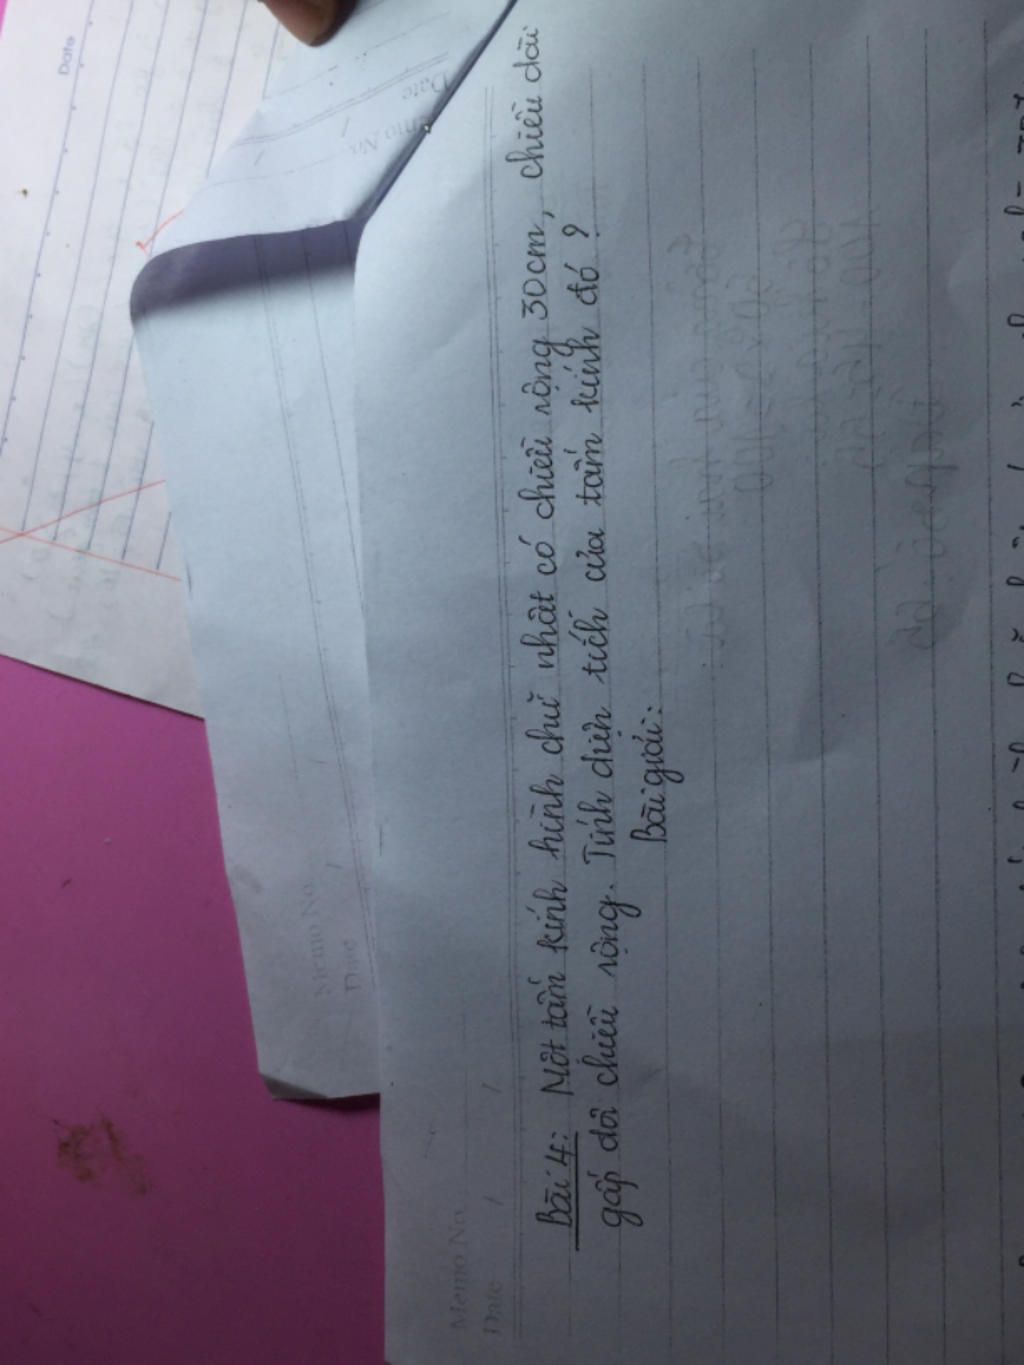 Date
Memo No.
Date
Memo No.
Date
Memo No.
Date
Bài 4: Một tấm kính hình chữ nhật có chiều rộng 30cm, chiều dài
gấp đôi chiều rộng. Tính diện tích của tấm kính đó ?
Bài giải: